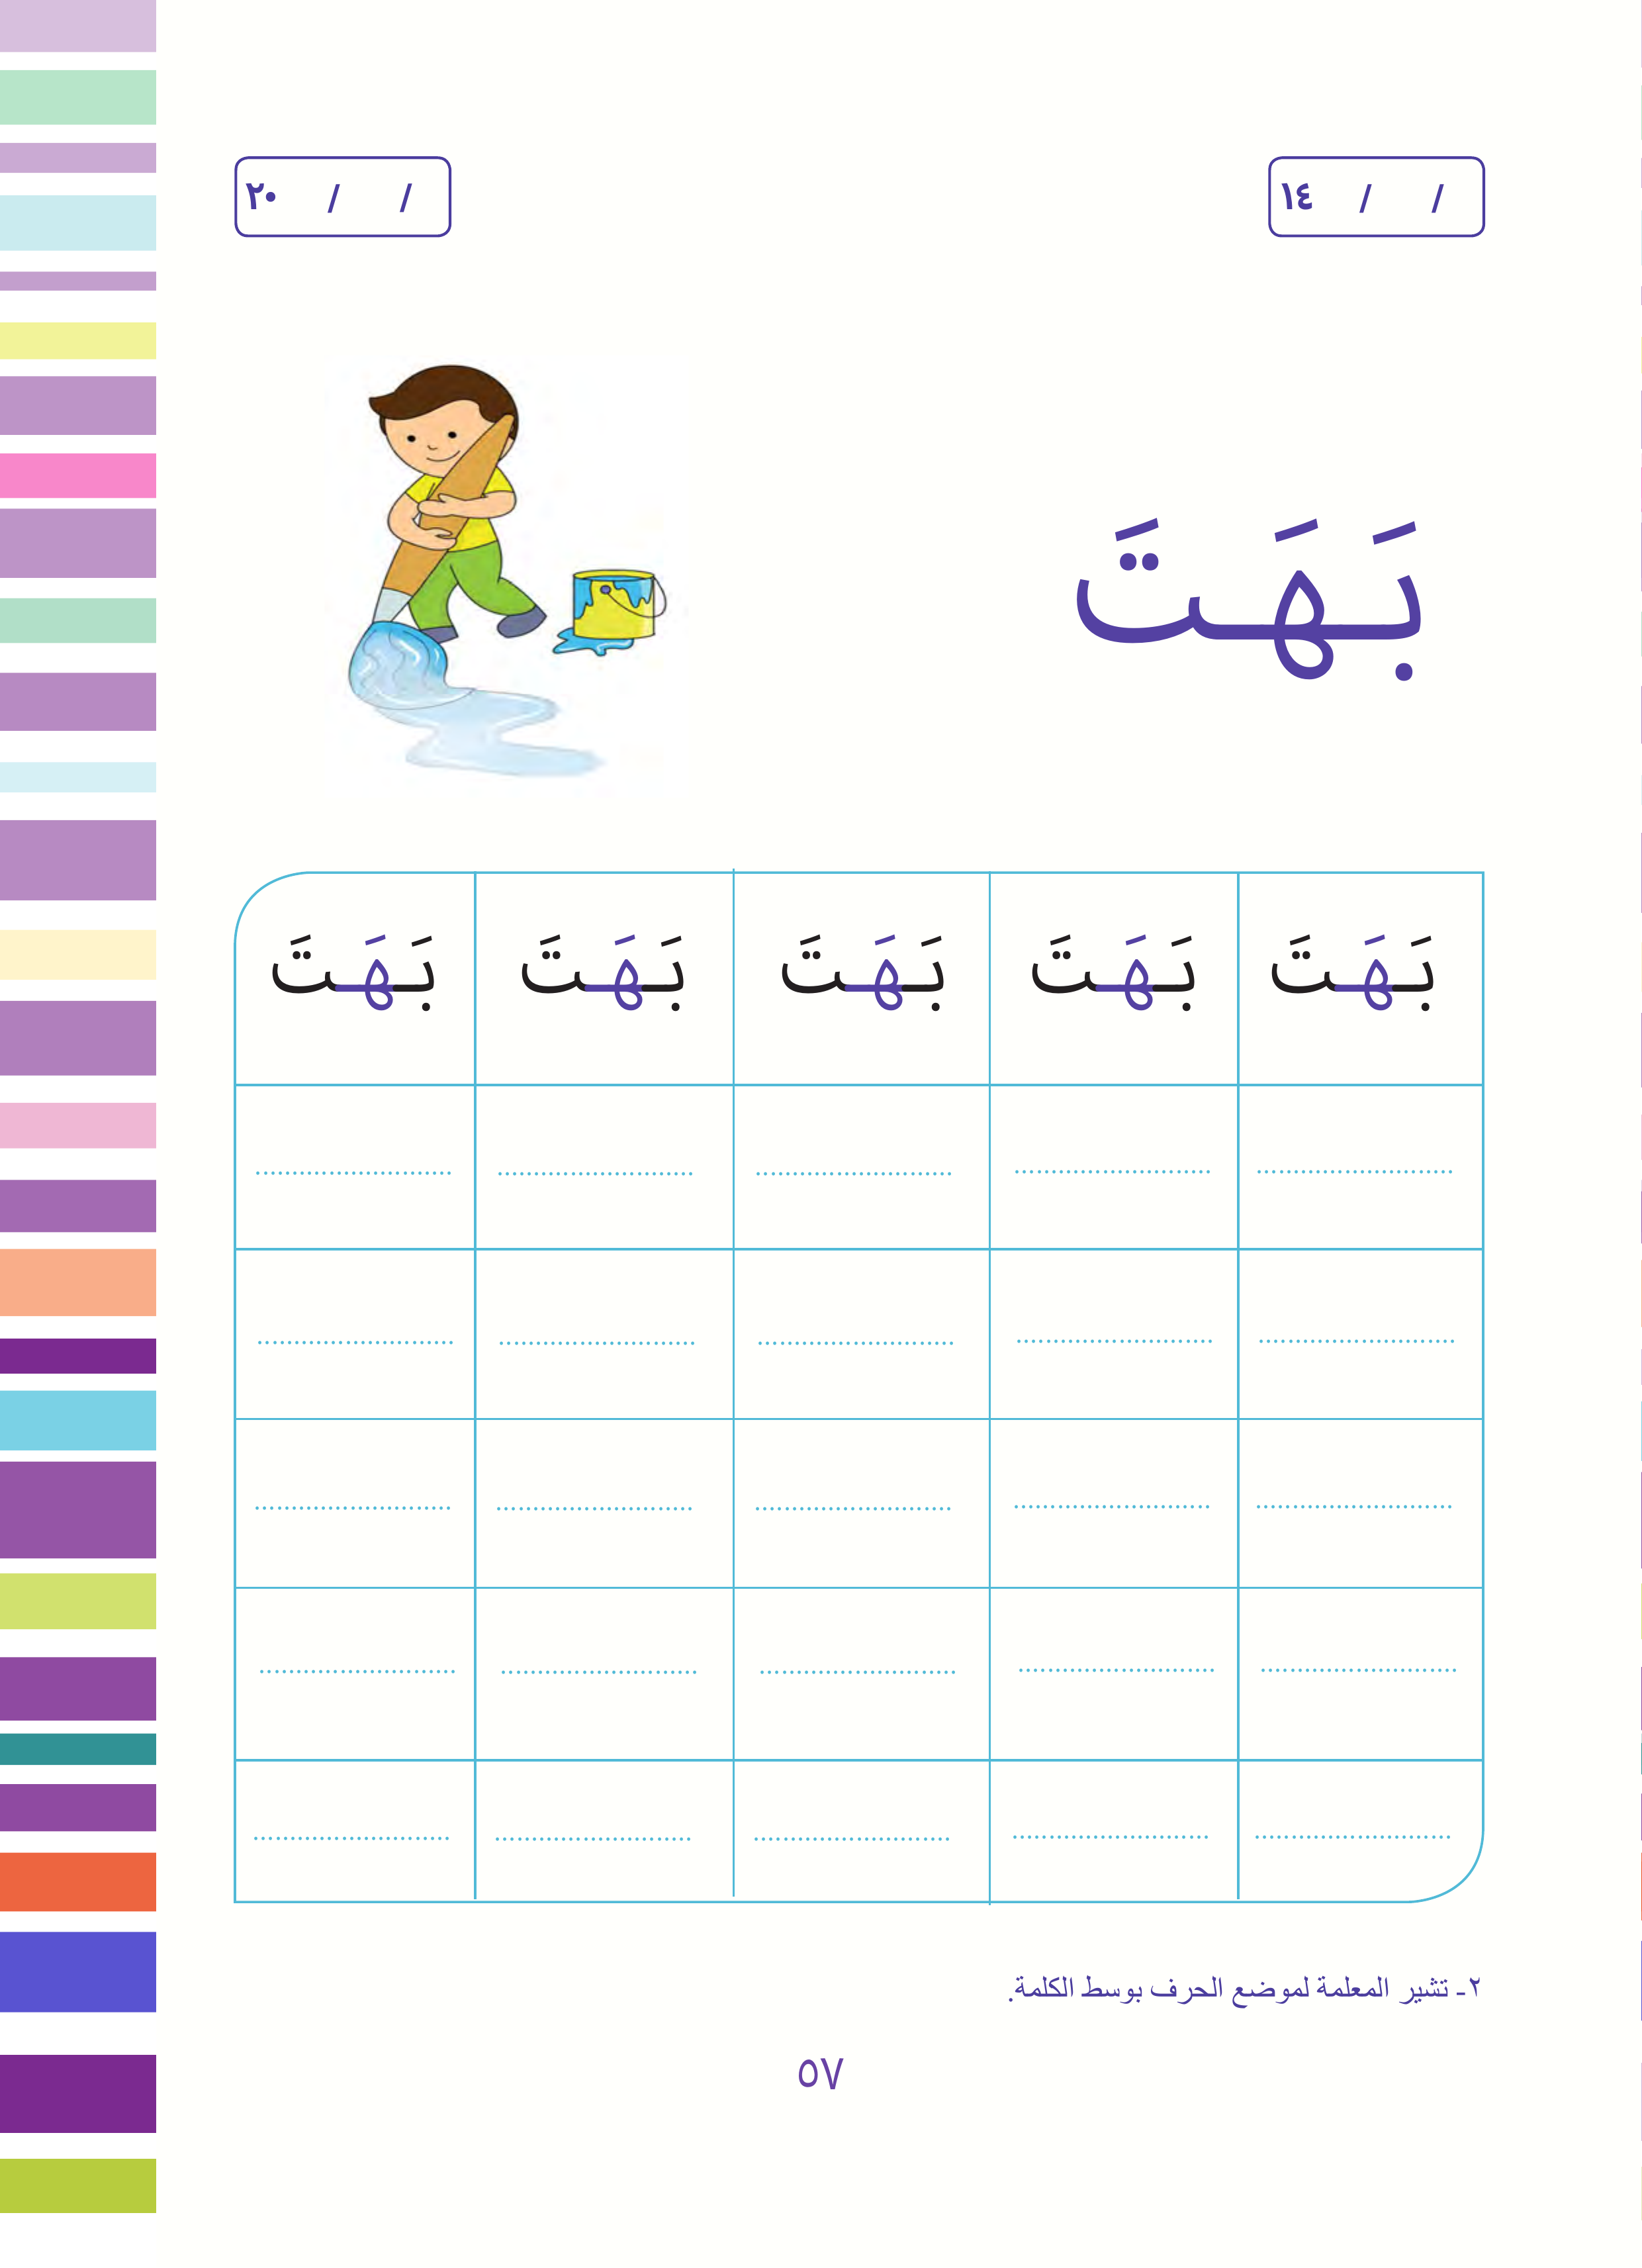 ١٤ / /
٢٠ / /
بَـهَـتَ
بَـهَـتَ بَـهَـتَ بَـهَـتَ بَـهَـتَ بَـهَـتَ
٢- تشير المعلمة لموضع الحرف بوسط الكلمة.
٥٧